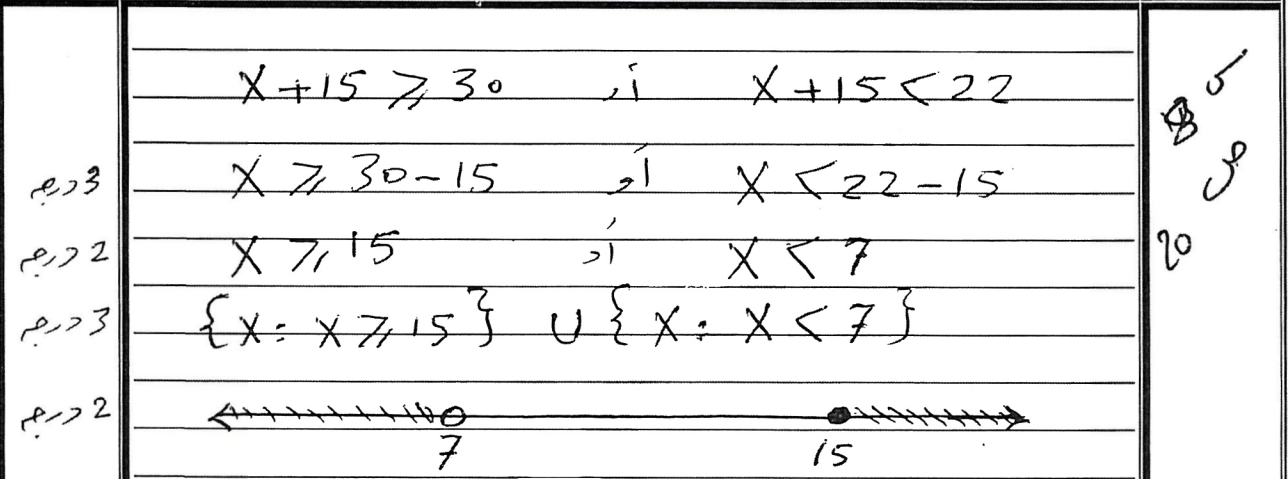 X+15 ⩾ 30 أو X+15 < 22
3 درجة X ⩾ 30-15 أو X < 22-15
2 درجة X ⩾ 15 أو X < 7
3 درجة {X: X ⩾ 15} ∪ {X: X < 7}
2 درجة
7 15